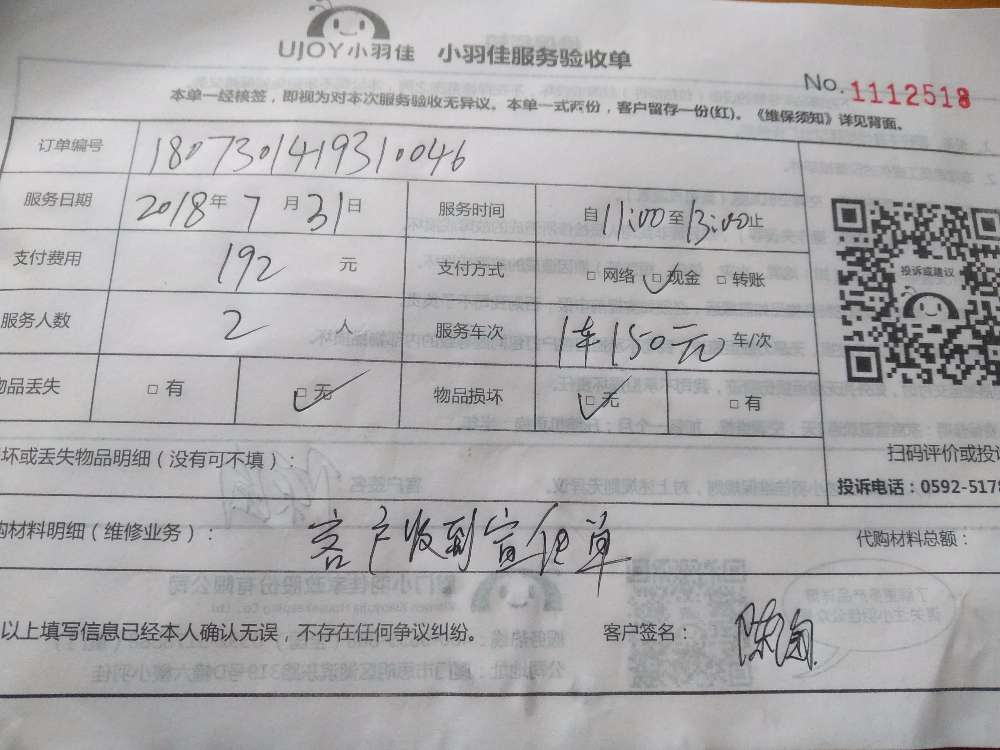 UJOY小羽佳 小羽佳服务验收单
No. 1112518
本单一经核签，即视为对本次服务验收无异议。本单一式两份，客户留存一份(红)。《维保须知》详见背面。
订单编号 180730141931 0046
服务日期 2018年 7 月 31 日 服务时间 自 11:00 至 13:00 止
支付费用 192 元 支付方式 □ 网络 □ 现金 □ 转账
投诉或建议
服务人数 2 人 服务车次 1车150元 车/次
物品丢失 □ 有 □ 无 物品损坏 □ 无 □ 有
坏或丢失物品明细（没有可不填）：
扫码评价或投诉
投诉电话：0592-5178
购材料明细（维修业务）： 客户收到宣传单 代购材料总额：
以上填写信息已经本人确认无误，不存在任何争议纠纷。 客户签名：